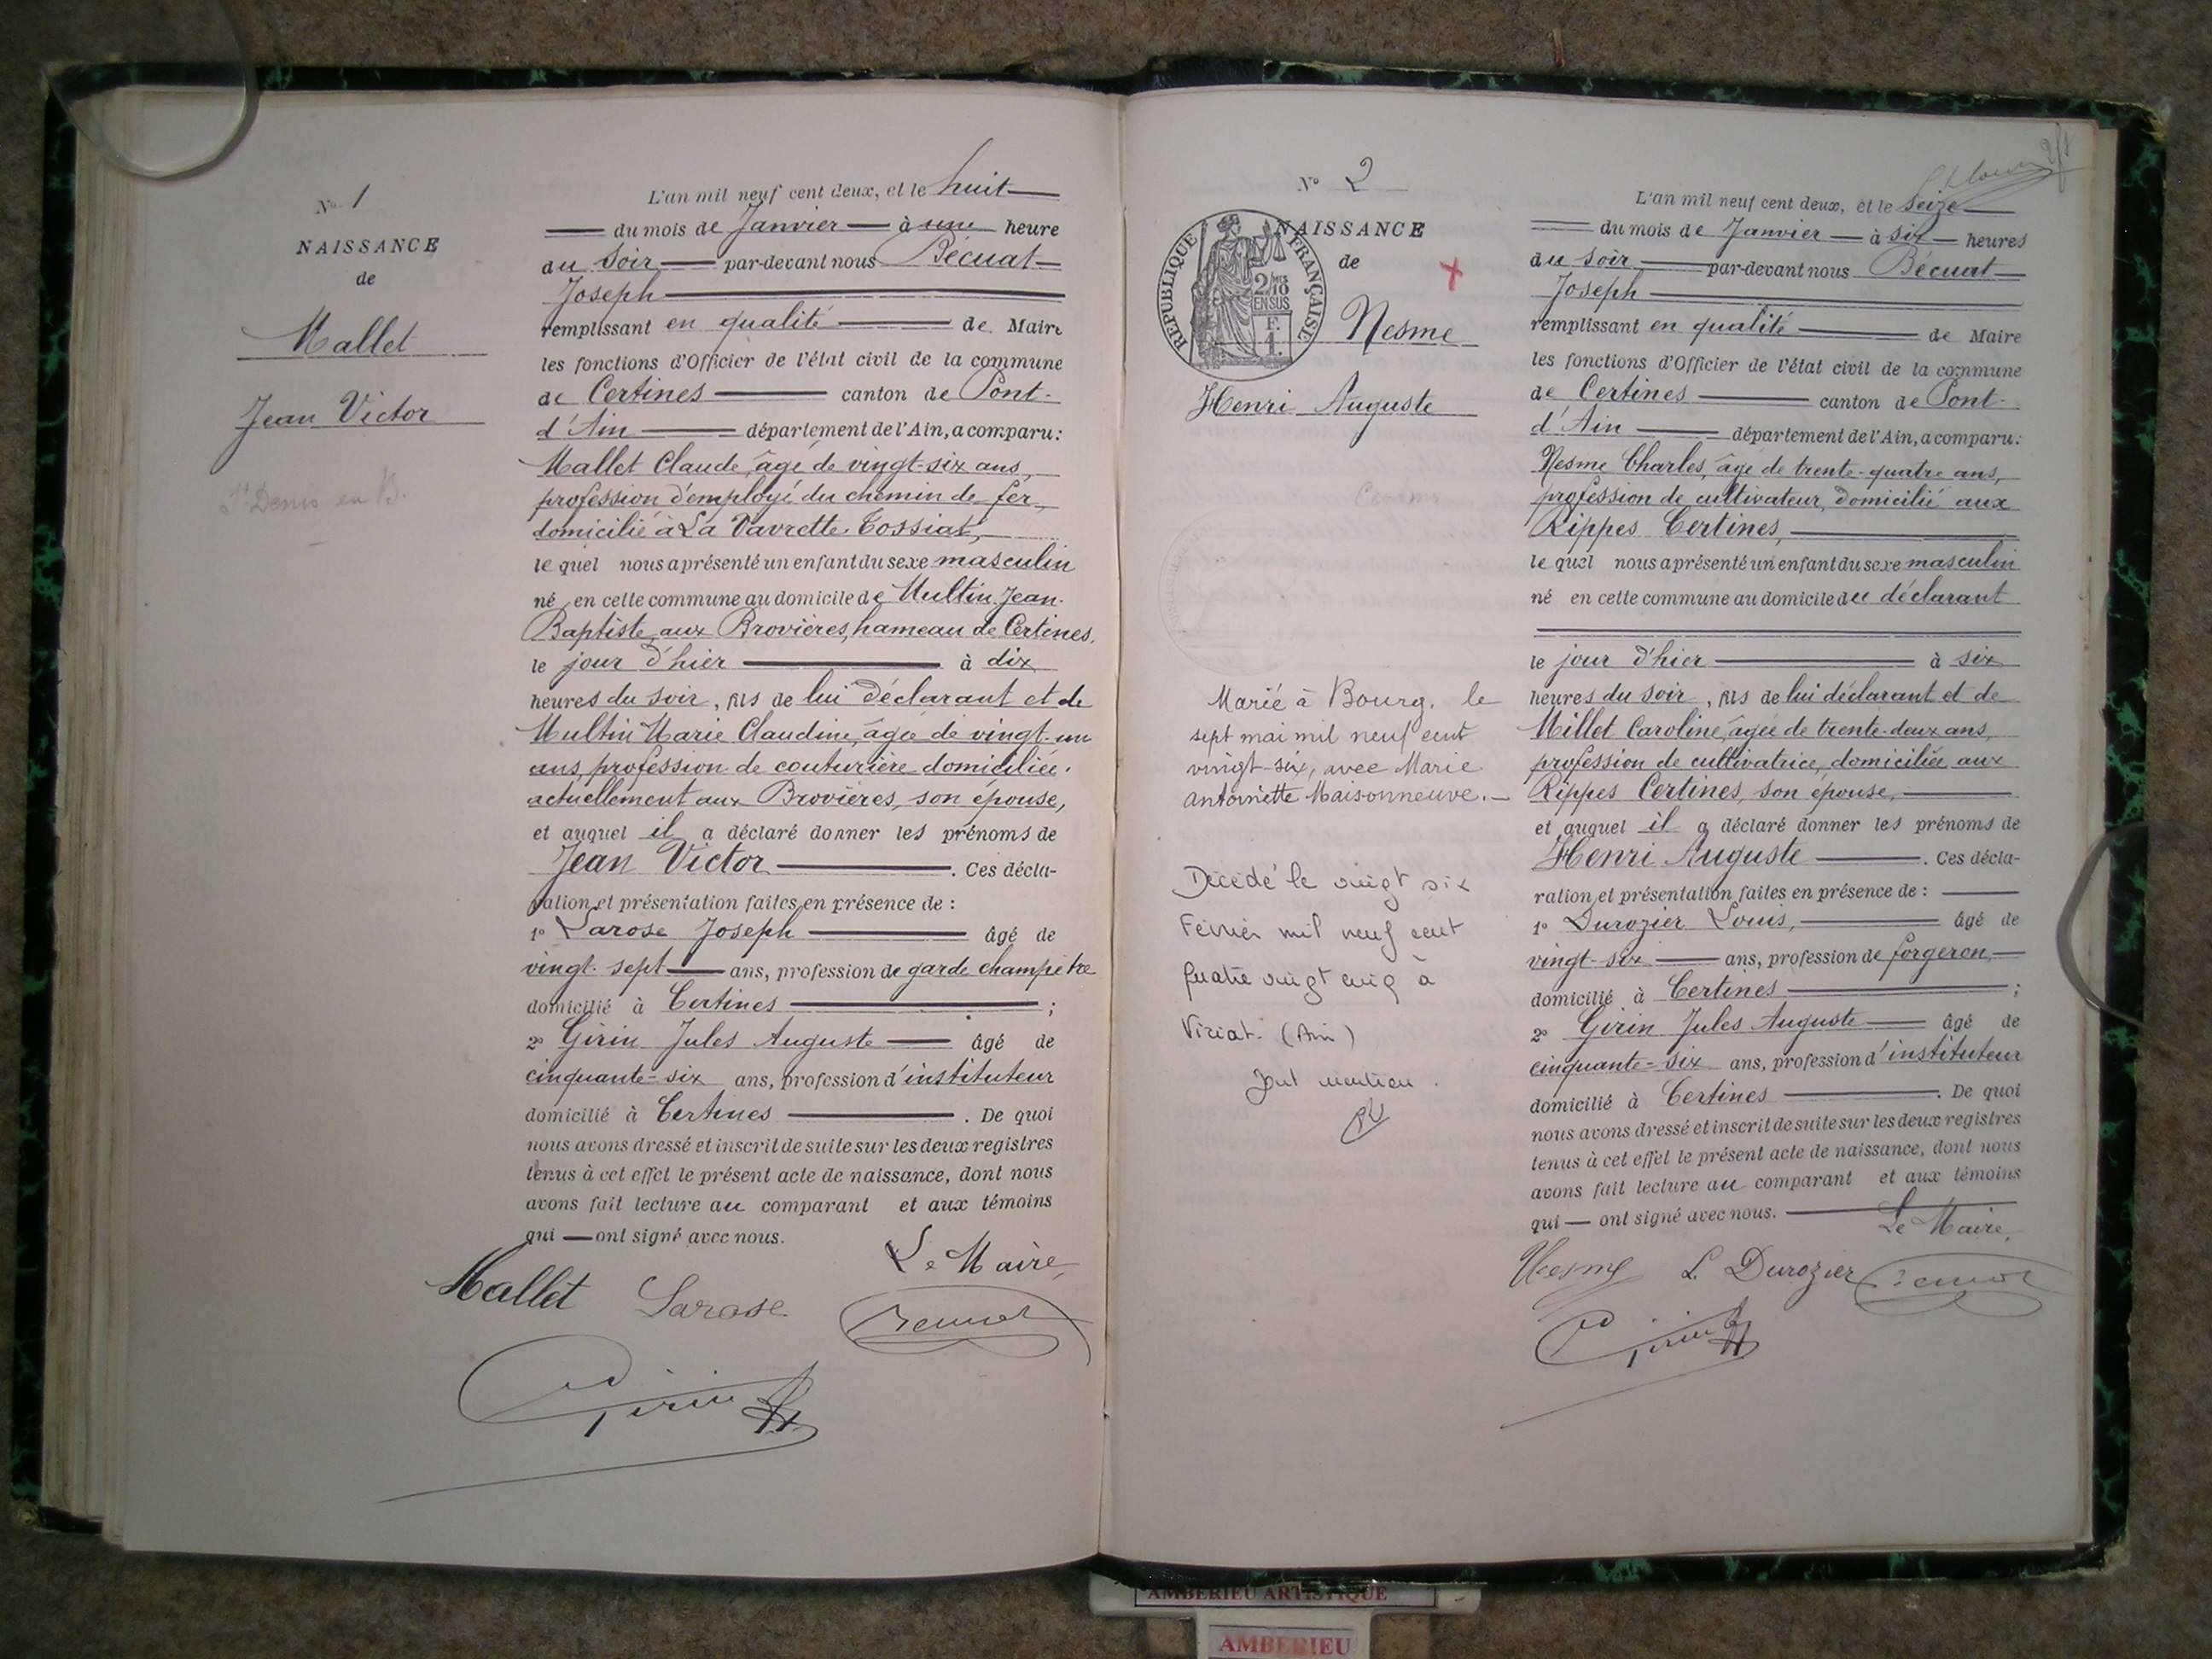 N° 1
NAISSANCE
de
Mallet
Jean Victor
St Denis en B.
L'an mil neuf cent deux, et le huit
du mois de Janvier à une heure
du soir par-devant nous Bécuat
Joseph
remplissant en qualité de Maire
les fonctions d'Officier de l'état civil de la commune
de Certines canton de Pont-
d'Ain département de l'Ain, a comparu:
Mallet Claude, âgé de vingt-six ans,
profession d'employé du chemin de fer,
domicilié à La Vavrette-Tossiat,
le quel nous a présenté un enfant du sexe masculin
né en cette commune au domicile de Multin Jean-
Baptiste aux Brovières, hameau de Certines,
le jour d'hier à dix
heures du soir, fils de lui déclarant et de
Multin Marie Claudine, âgée de vingt-un
ans, profession de couturière domiciliée
actuellement aux Brovières, son épouse,
et auquel il a déclaré donner les prénoms de
Jean Victor. Ces décla-
ration et présentation faites en présence de :
1° Larose Joseph âgé de
vingt-sept ans, profession de garde champêtre
domicilié à Certines ;
2° Girin Jules Auguste âgé de
cinquante-six ans, profession d'instituteur
domicilié à Certines. De quoi
nous avons dressé et inscrit de suite sur les deux registres
tenus à cet effet le présent acte de naissance, dont nous
avons fait lecture au comparant et aux témoins
qui ont signé avec nous.
Le Maire,
Mallet Larose
Girin
N° 2
NAISSANCE
de
REPUBLIQUE FRANÇAISE
2/10
EN SUS
F.
1.
Nesme
Henri Auguste
Marié à Bourg, le
sept mai mil neuf cent
vingt-six, avec Marie
Antoinette Maisonneuve.
Décédé le vingt six
Février mil neuf cent
quatre vingt cinq à
Viriat. (Ain)
L'an mil neuf cent deux, et le seize
du mois de Janvier à six heures
du soir par-devant nous Bécuat
Joseph
remplissant en qualité de Maire
les fonctions d'Officier de l'état civil de la commune
de Certines canton de Pont-
d'Ain département de l'Ain, a comparu:
Nesme Charles, âgé de trente-quatre ans,
profession de cultivateur, domicilié aux
Rippes Certines,
le quel nous a présenté un enfant du sexe masculin
né en cette commune au domicile du déclarant
le jour d'hier à six
heures du soir, fils de lui déclarant et de
Millet Caroline, âgée de trente-deux ans,
profession de cultivatrice, domiciliée aux
Rippes Certines, son épouse,
et auquel il a déclaré donner les prénoms de
Henri Auguste. Ces décla-
ration et présentation faites en présence de :
1° Durozier Louis, âgé de
vingt-six ans, profession de forgeron,
domicilié à Certines ;
2° Girin Jules Auguste âgé de
cinquante-six ans, profession d'instituteur
domicilié à Certines. De quoi
nous avons dressé et inscrit de suite sur les deux registres
tenus à cet effet le présent acte de naissance, dont nous
avons fait lecture au comparant et aux témoins
qui ont signé avec nous.
Le Maire,
Nesme L. Durozier
Girin
AMBERIEU ARTISTIQUE
AMBERIEU